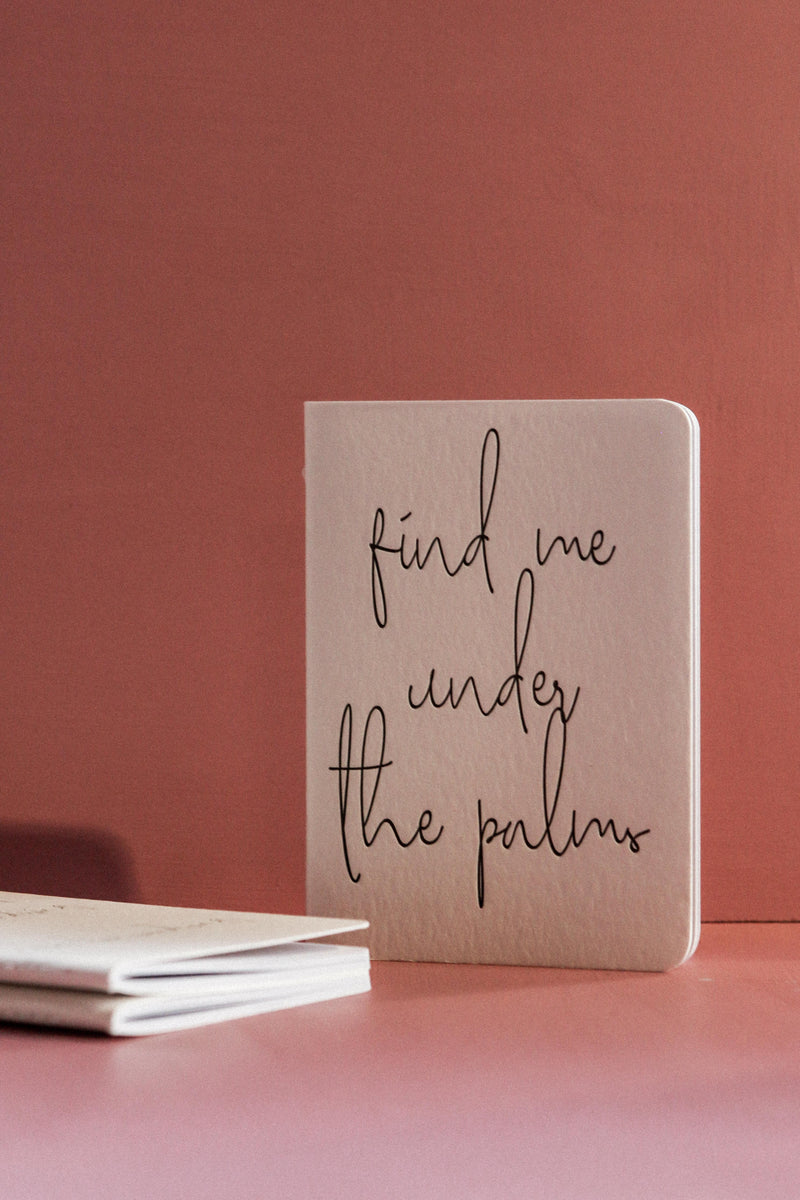 find me
under
the palms